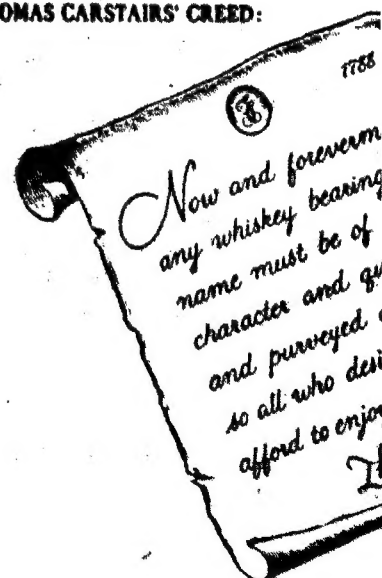 OMAS CARSTAIRS' CREED:
1788
Now and foreverm
any whiskey bearing
name must be of
character and qu
and purveyed
so all who desi
afford to enjoy